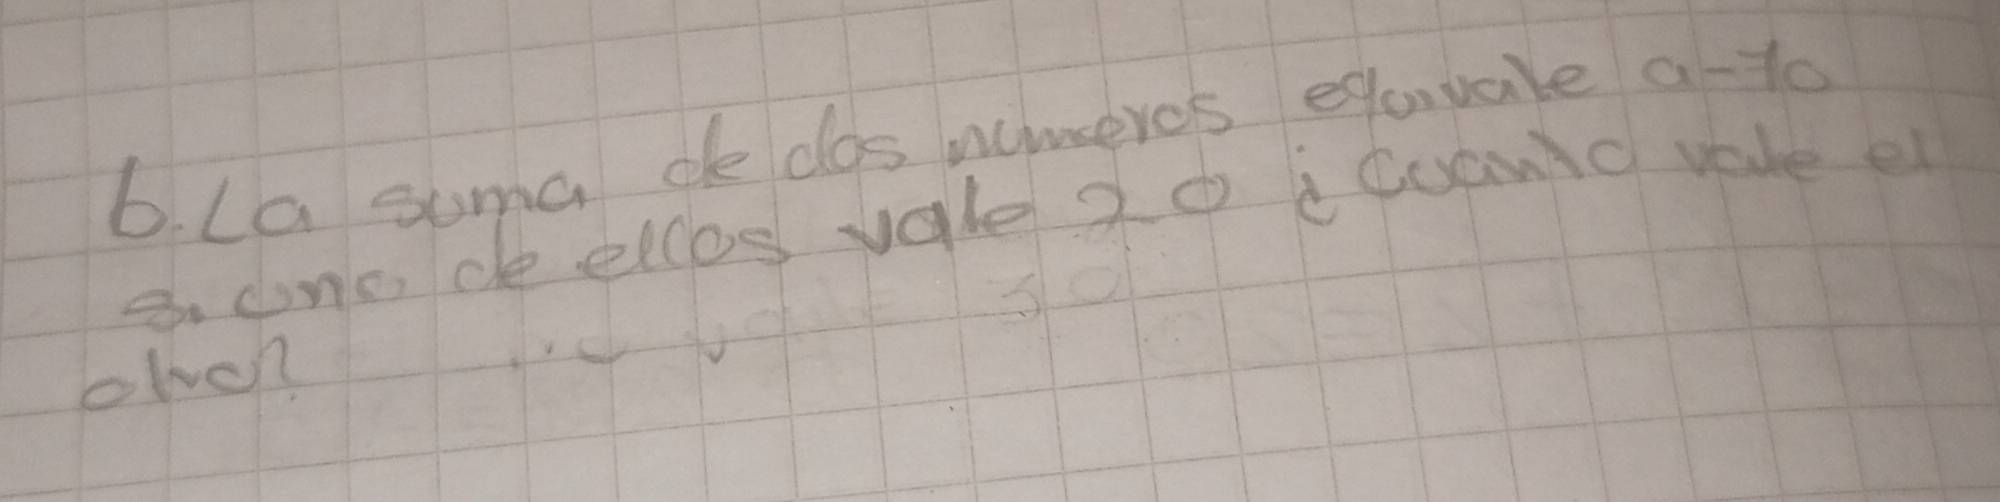 b. La suma de dos numeros equivale a -70
si uno de ellos vale 20 ¿Cuanto vale el
otro?